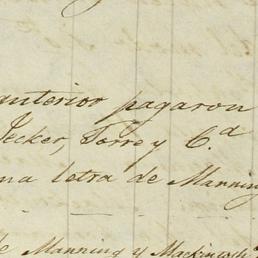 anterior pagaron
Jecker, Torre y C.a
na letra de Manning
de Manning y Mackintosh